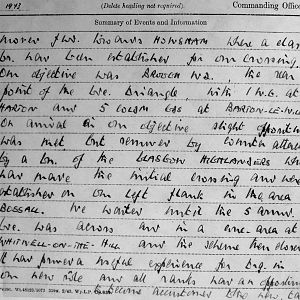 1943
(Delete heading not required).
Commanding Officer
Summary of Events and Information
moved fwd. towards HOWSHAM where a class
bn. had been established for our crossing.
Our objective was BARTON Wd., the rear
point of the Bde. Triangle, with 1 W.G. at
HARTON and 5 COLDM GDS at BARTON-LE-WIL
On arrival at our objective slight opposition
was met but removed by counter attack
by a bn. of the GLASGOW HIGHLANDERS who
had made the initial crossing and were
established on our left flank in the area
BOSSALL. We waited until the 5 armd.
bde. was across and in a conc. area at
WHITWELL-ON-THE-HILL and the scheme then closed
It had proved a useful experience for Bdg. in
our new role and all ranks had an opportun
to become accustomed to the new